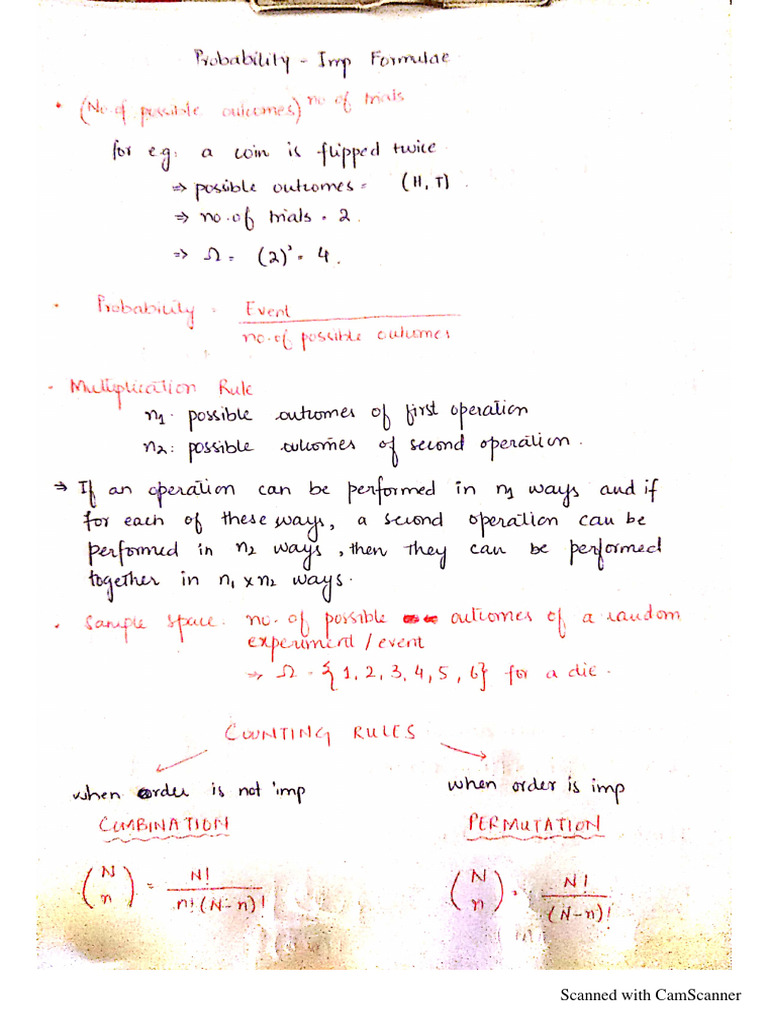 Probability - Imp Formulae
• (No. of possible outcomes)^no of trials
for eg: a coin is flipped twice
⇒ possible outcomes = (H, T).
⇒ no. of trials = 2.
⇒ Ω = (2)² = 4.
• Probability = Event / no. of possible outcomes
• Multiplication Rule
n1: possible outcomes of first operation
n2: possible outcomes of second operation.
⇒ If an operation can be performed in n1 ways and if
for each of these ways, a second operation can be
performed in n2 ways, then they can be performed
together in n1 x n2 ways.
• Sample space: no. of possible outcomes of a random
experiment/event
⇒ Ω = {1, 2, 3, 4, 5, 6} for a die.
COUNTING RULES
when order is not imp
when order is imp
COMBINATION
PERMUTATION
(N n) = N! / n! (N-n)!
(N n) = N! / (N-n)!
Scanned with CamScanner